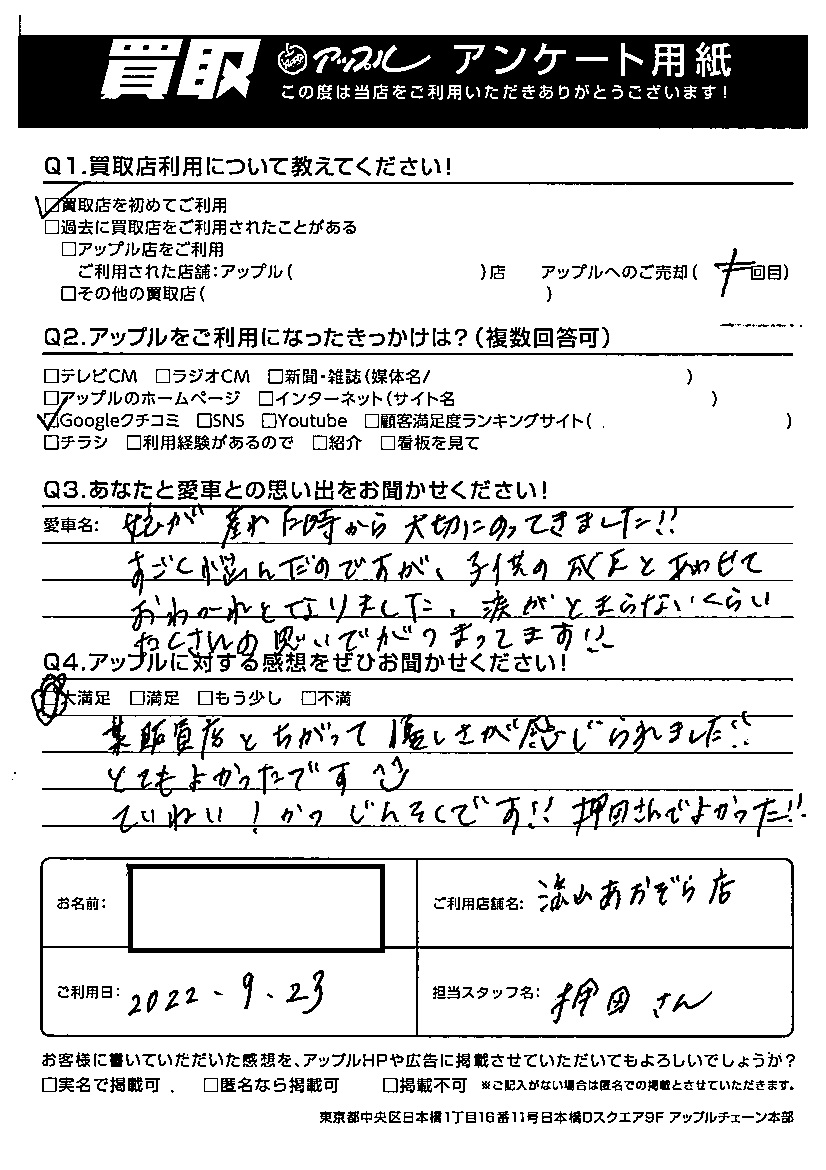 買取 アップル アンケート用紙
この度は当店をご利用いただきありがとうございます！
Q1.買取店利用について教えてください！
☑買取店を初めてご利用
□過去に買取店をご利用されたことがある
□アップル店をご利用
ご利用された店舗：アップル（ ）店 アップルへのご売却（ 回目）
□その他の買取店（ ）
Q2.アップルをご利用になったきっかけは？（複数回答可）
□テレビCM □ラジオCM □新聞・雑誌（媒体名/ ）
□アップルのホームページ □インターネット（サイト名 ）
☑Googleクチコミ □SNS □Youtube □顧客満足度ランキングサイト（ ）
□チラシ □利用経験があるので □紹介 □看板を見て
Q3.あなたと愛車との思い出をお聞かせください！
愛車名： 娘が産れた時から大切にのってきました!!
すごく悩んだのですが、子供の成長とあわせて
おわかれとなりました。涙がとまらないくらい
たくさんの思いでがつまってます!!
Q4.アップルに対する感想をぜひお聞かせください！
□大満足 □満足 □もう少し □不満
某販買店とちがって優しさが感じられました!!
とてもよかったです
ていねい！かつじんそくです!! 押田さんでよかった!!
お名前：
ご利用店舗名： 流山あおぞら店
ご利用日： 2022.9.23
担当スタッフ名： 押田さん
お客様に書いていただいた感想を、アップルHPや広告に掲載させていただいてもよろしいでしょうか？
□実名で掲載可 . □匿名なら掲載可 □掲載不可 ※ご記入がない場合は匿名での掲載とさせていただきます。
東京都中央区日本橋1丁目16番11号日本橋Dスクエア9F アップルチェーン本部